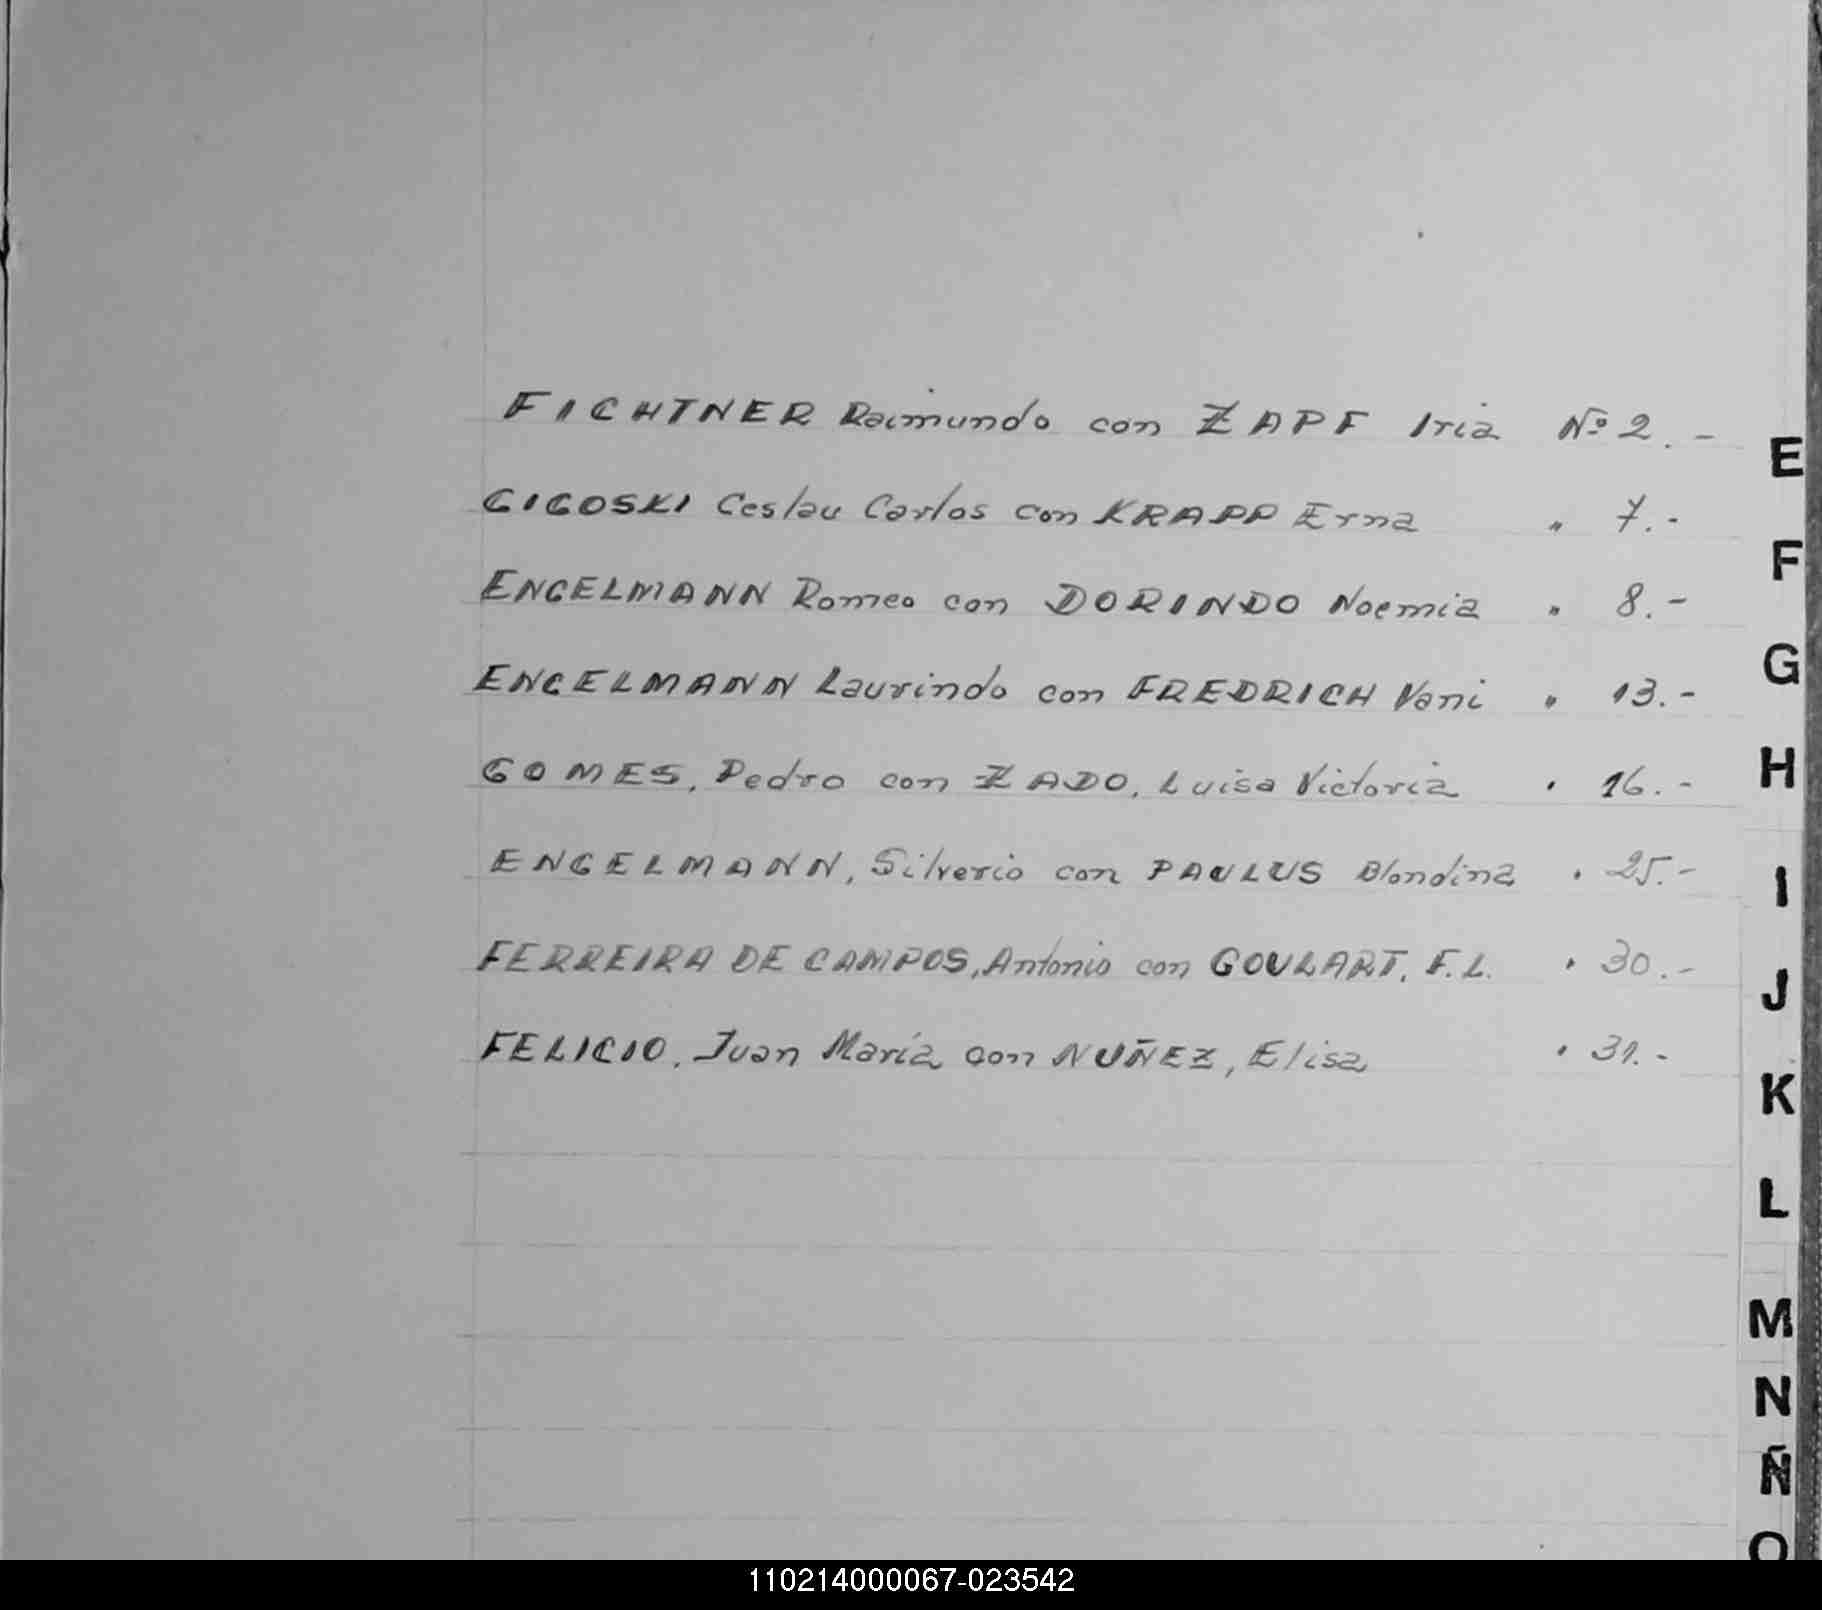 FICHTNER Raimundo con ZAPF Iria Nº 2.-
GIGOSKI Ceslau Carlos con KRAPP Erna " 7.-
ENGELMANN Romeo con DORINDO Noemia " 8.-
ENGELMANN Laurindo con FREDRICH Vani " 13.-
GOMES, Pedro con ZADO, Luisa Victoria " 16.-
ENGELMANN, Silverio con PAULUS Blondina " 25.-
FERREIRA DE CAMPOS, Antonio con GOULART, F.L. " 30.-
FELICIO, Juan María con NUÑEZ, Elisa " 31.-
E
F
G
H
I
J
K
L
M
N
Ñ
O
110214000067-023542